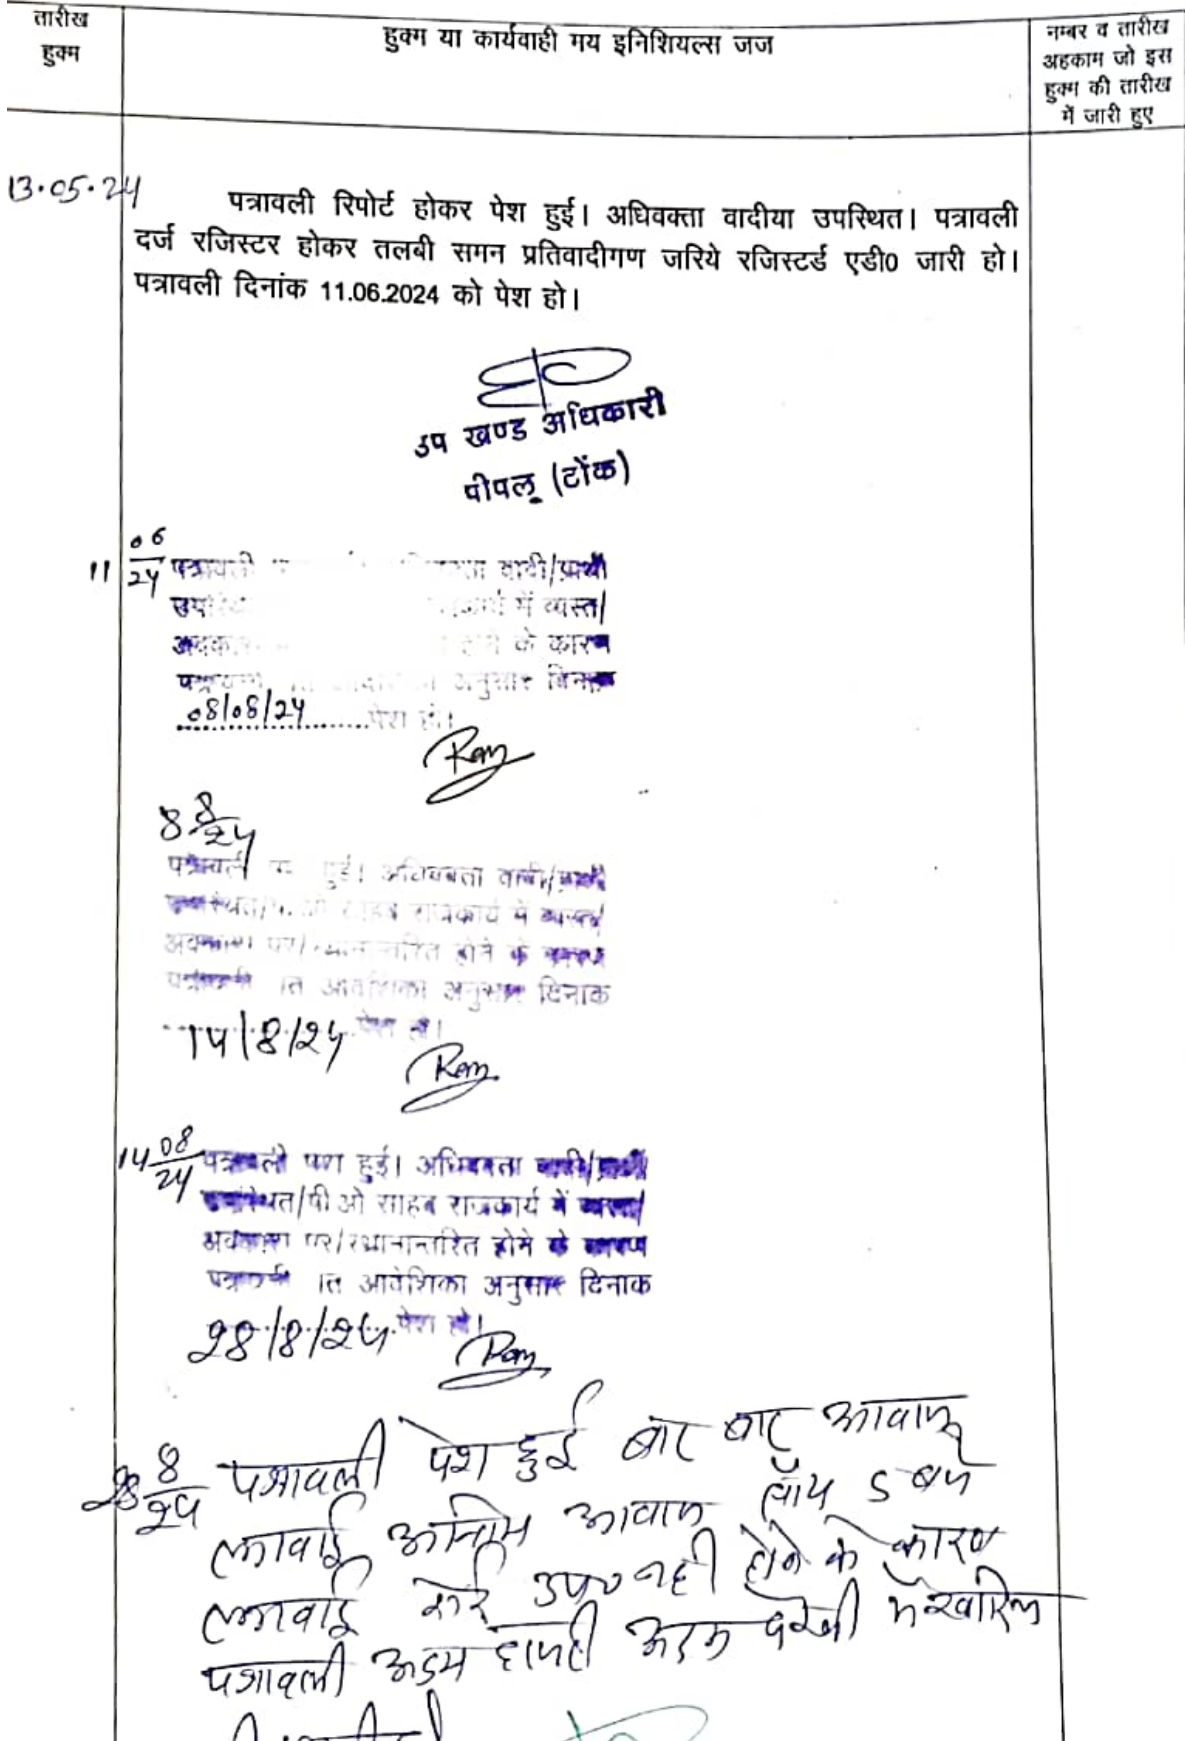 तारीख
हुक्म
हुक्म या कार्यवाही मय इनिशियल्स जज
नम्बर व तारीख
अहकाम जो इस
हुक्म की तारीख
में जारी हुए
13.05.24
पत्रावली रिपोर्ट होकर पेश हुई। अधिवक्ता वादीया उपस्थित। पत्रावली
दर्ज रजिस्टर होकर तलबी समन प्रतिवादीगण जरिये रजिस्टर्ड एडी0 जारी हो।
पत्रावली दिनांक 11.06.2024 को पेश हो।
उप खण्ड अधिकारी
पीपलू (टोंक)
11 06/24
पत्रावली वादी/प्रार्थी
में व्यस्त/
के कारण
अनुसार दिनांक
08/08/24 पेश हो।
8 8/24
पत्रावली हुई। अधिवक्ता वादी/प्रार्थी
साहब राजकार्य में व्यस्त/
अवकाश पर/स्थानान्तरित होने के कारण
पत्रावली आदेशिका अनुसार दिनांक
14/8/24 पेश हो।
14 08/24
पत्रावली पेश हुई। अधिवक्ता वादी/प्रार्थी
उपस्थित/पी ओ साहब राजकार्य में व्यस्त/
अवकाश पर/स्थानान्तरित होने के कारण
पत्रावली आदेशिका अनुसार दिनांक
28/8/24 पेश हो।
28 8/24
पत्रावली पेश हुई बार बार आवाज
लगवाई अन्तिम आवाज 5 बजे
लगवाई कोई उप0 नही होने के कारण
पत्रावली अदम हाजरी अदम पैरवी में खारिज